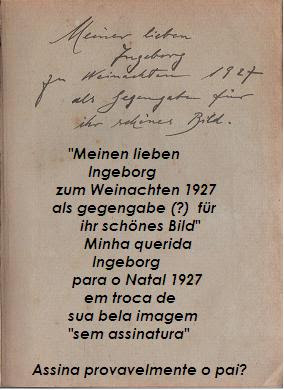 Meiner lieben
Ingeborg
zu Weinachten 1927
als Gegengabe für
ihr schönes Bild.
"Meinen lieben
Ingeborg
zum Weinachten 1927
als gegengabe (?) für
ihr schönes Bild"
Minha querida
Ingeborg
para o Natal 1927
em troca de
sua bela imagem
"sem assinatura"
Assina provavelmente o pai?